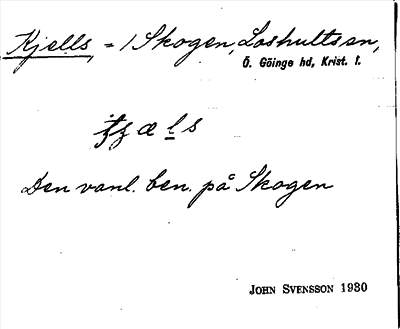 Kjells = 1 Skogen, Loshults sn,
Ö. Göinge hd, Krist. l.
æls
Den vanl. ben. på Skogen
JOHN SVENSSON 1930